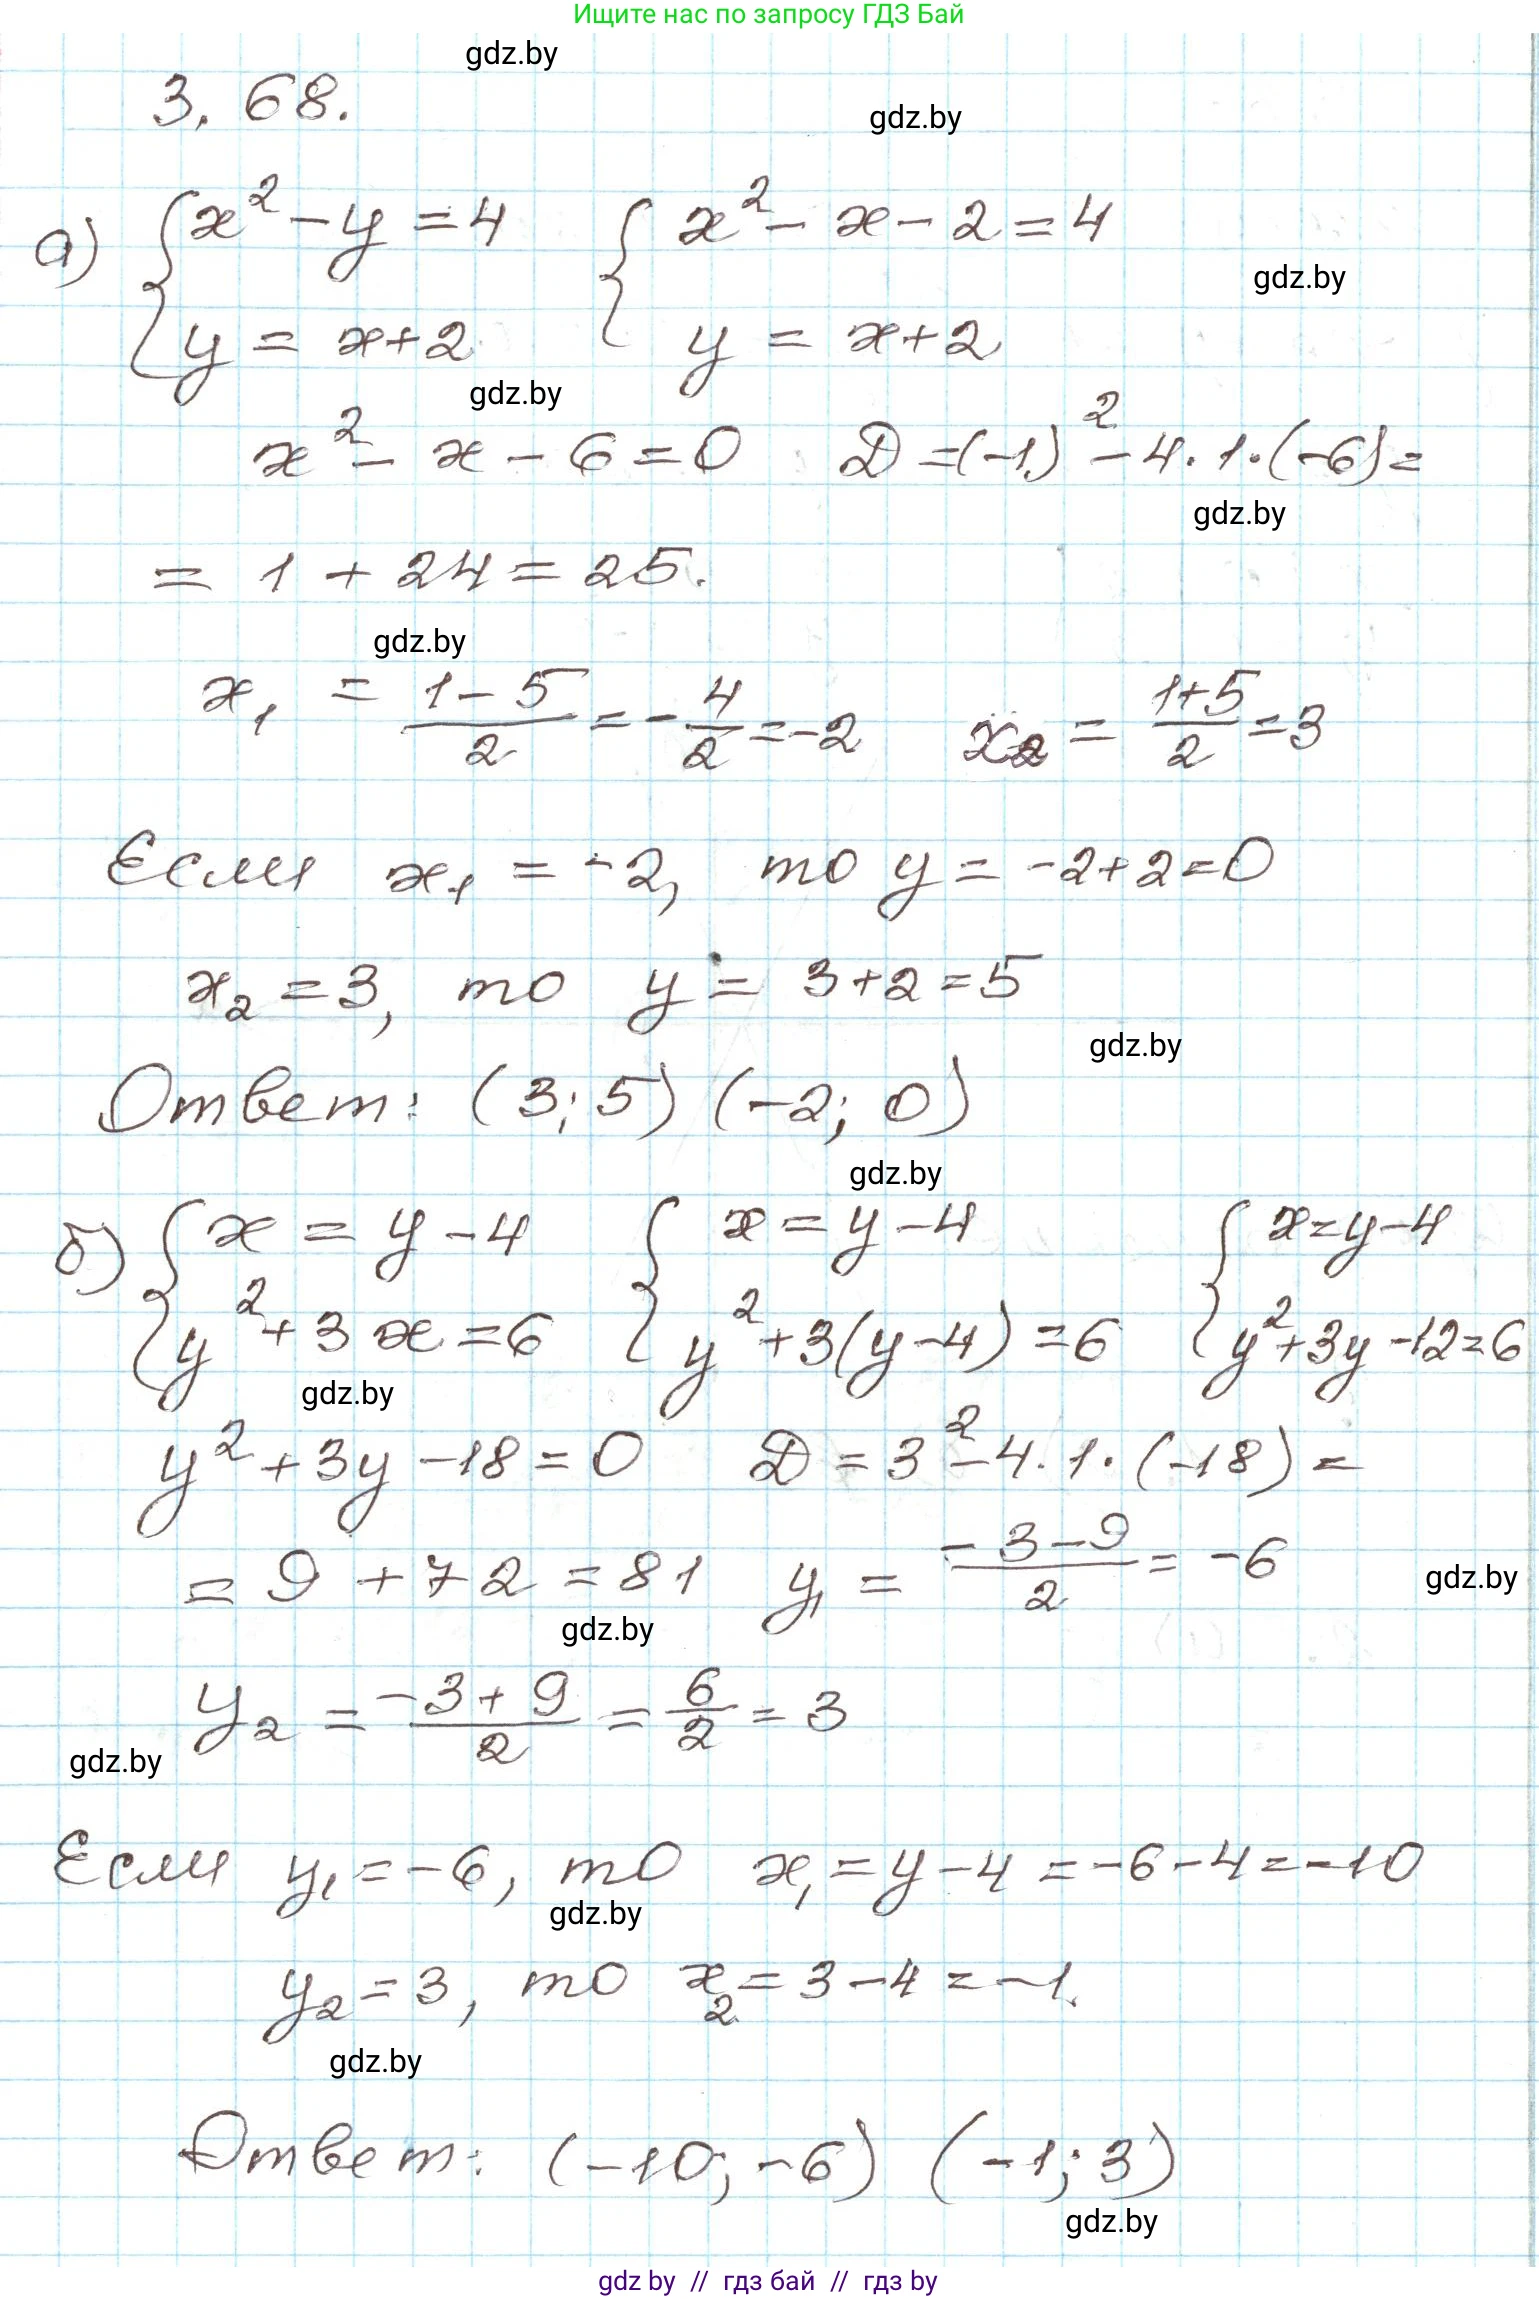 Ищите нас по запросу ГДЗ Бай
gdz.by
3. 68.
gdz.by
а) { x² - y = 4 { x² - x - 2 = 4
gdz.by
y = x+2 y = x+2
gdz.by
x² - x - 6 = 0 D = (-1)² - 4·1·(-6) =
gdz.by
= 1 + 24 = 25.
gdz.by
x₁ = (1-5)/2 = -4/2 = -2 x₂ = (1+5)/2 = 3
Если x₁ = -2, то y = -2+2=0
x₂ = 3, то y = 3+2=5
gdz.by
Ответ: (3; 5) (-2; 0)
gdz.by
б) { x = y - 4 { x = y - 4 { x=y-4
y² + 3x = 6 y² + 3(y-4) = 6 y²+3y-12=6
gdz.by
y² + 3y - 18 = 0 D = 3² - 4·1·(-18) =
= 9 + 72 = 81 y₁ = (-3-9)/2 = -6
gdz.by
gdz.by
y₂ = (-3+9)/2 = 6/2 = 3
gdz.by
Если y₁ = -6, то x₁ = y - 4 = -6-4 = -10
gdz.by
y₂ = 3, то x₂ = 3-4 = -1.
gdz.by
Ответ: (-10; -6) (-1; 3)
gdz.by
gdz by // гдз бай // гдз by